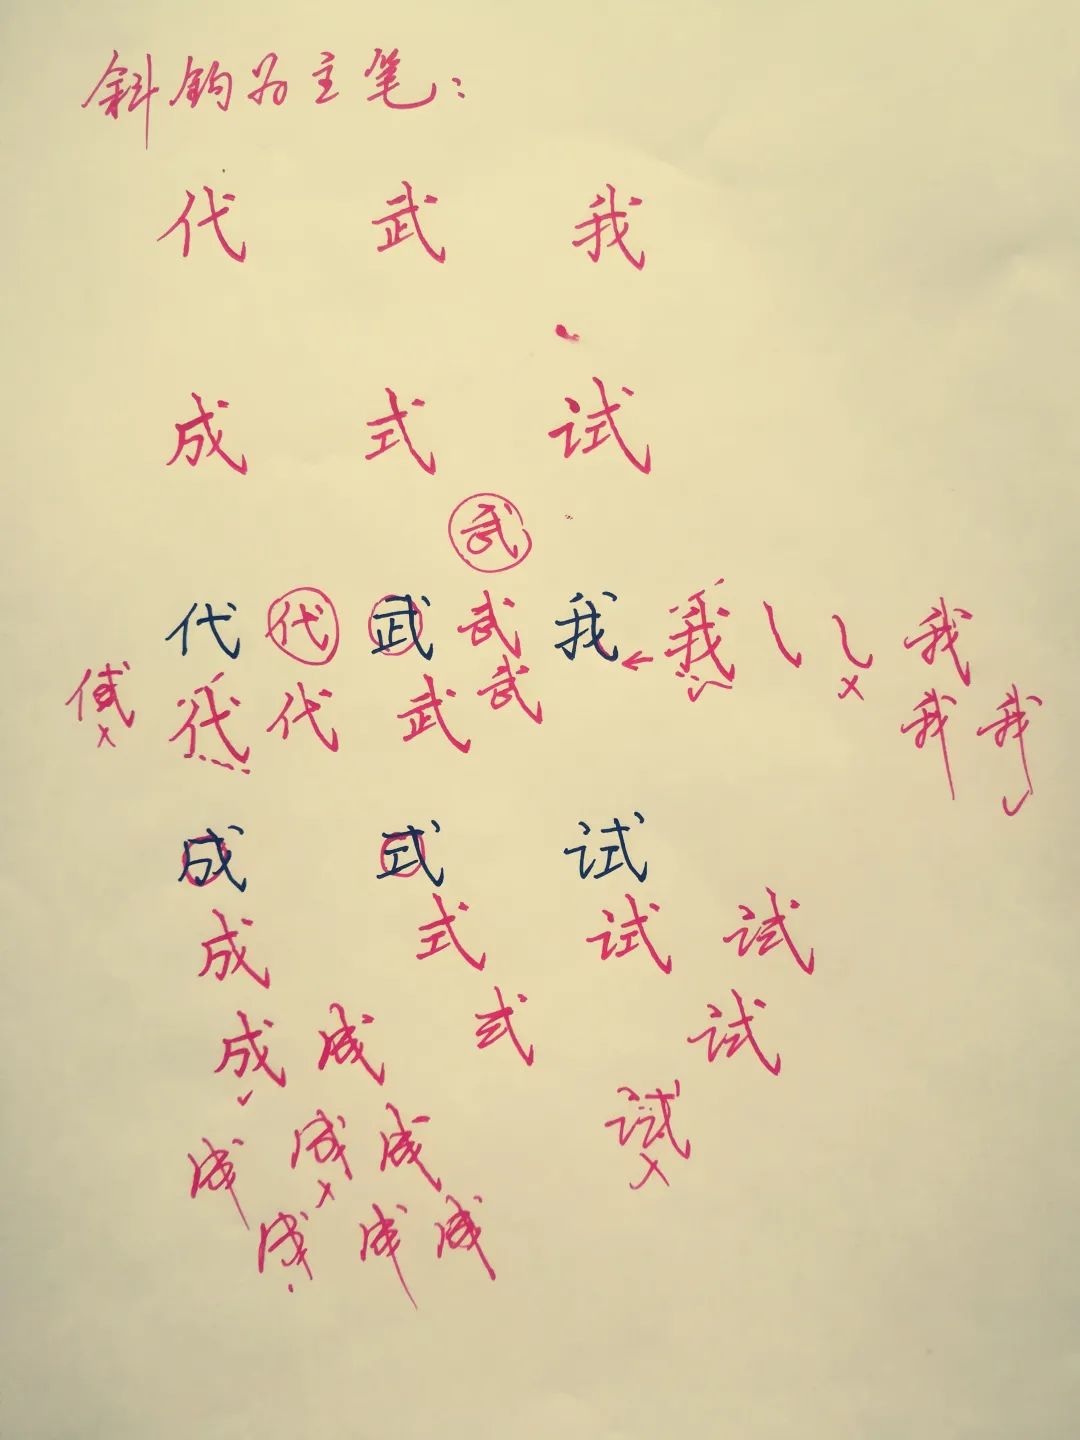 斜钩为主笔：
代 武 我
成 式 试
武
代 代 武 武 我 我 我
代 代 代 武 武 我 我
成 式 试
成 式 试 试
成 成 式 试
成 成 成 试
成 成 成